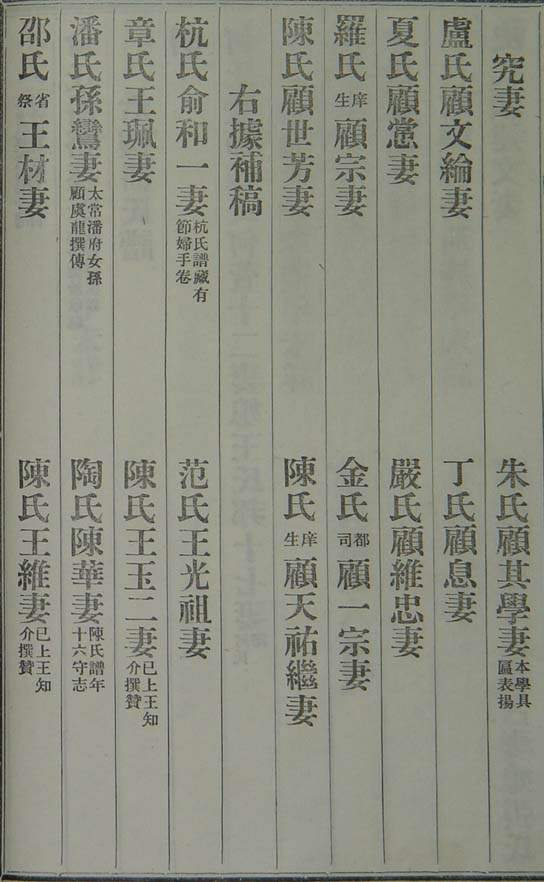 究妻 朱氏顧其學妻本學具匾表揚
盧氏顧文綸妻 丁氏顧息妻
夏氏顧悳妻 嚴氏顧維忠妻
羅氏庠生顧宗妻 金氏都司顧一宗妻
陳氏顧世芳妻 陳氏庠生顧天祐繼妻
右據補稿
杭氏俞和一妻杭氏譜藏有節婦手卷 范氏王光祖妻
章氏王珮妻 陳氏王玉二妻已上王知介撰贊
潘氏孫鸞妻太常潘府女孫顧虞龍撰傳 陶氏陳華妻陳氏譜年十六守志
邵氏省祭王材妻 陳氏王維妻已上王知介撰贊